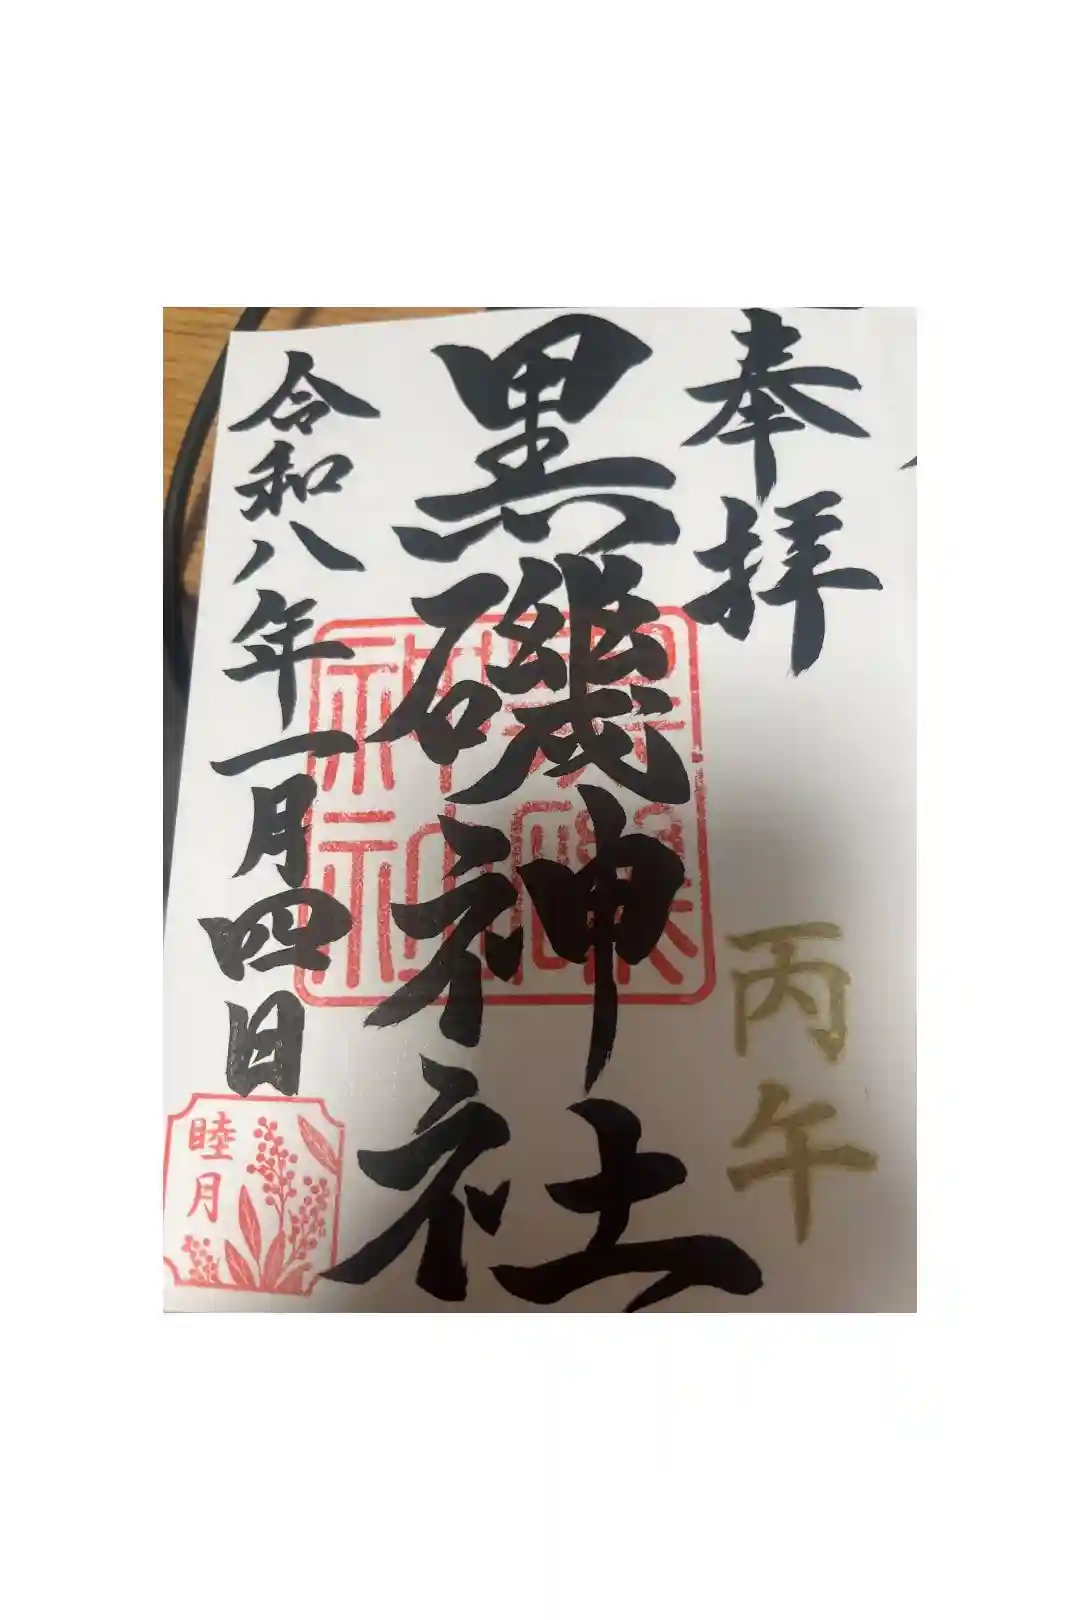 奉拝
丙午
黒磯神社
黒磯
神社
令和八年一月四日
睦月